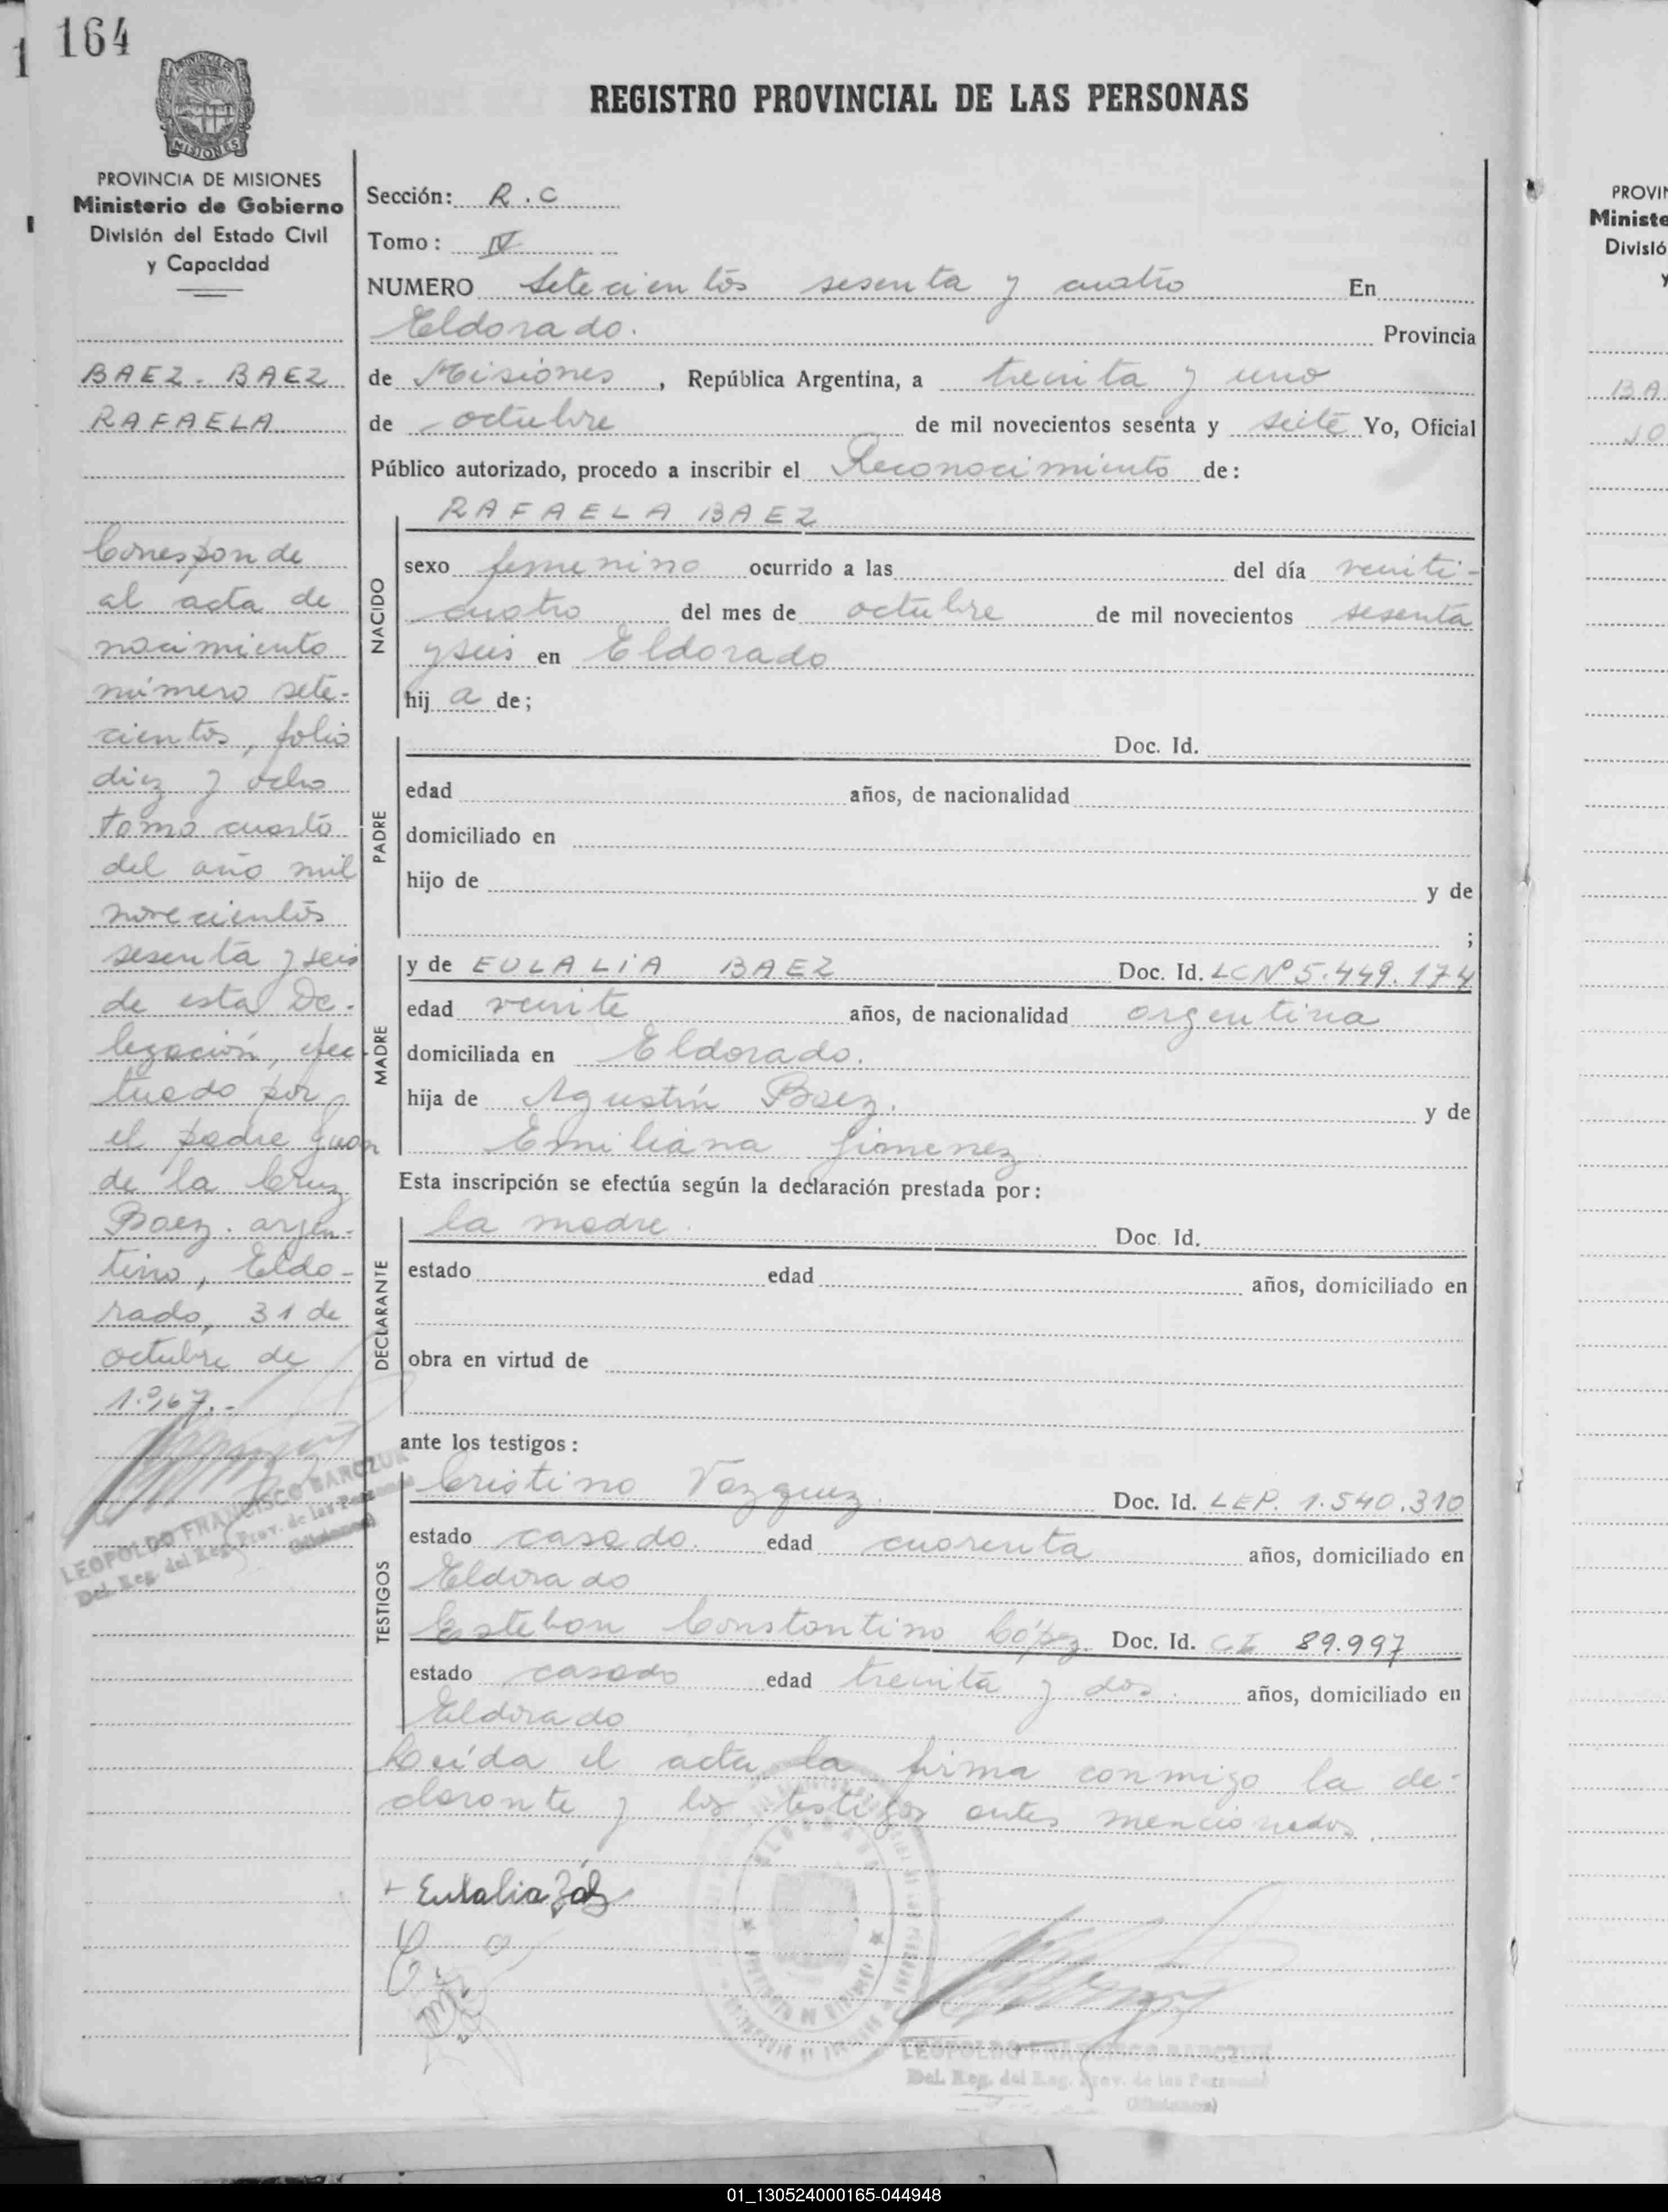 1 164
PROVINCIA DE MISIONES
REGISTRO PROVINCIAL DE LAS PERSONAS
PROVINCIA DE MISIONES
Ministerio de Gobierno
División del Estado Civil
y Capacidad
BAEZ. BAEZ
RAFAELA
Corresponde
al acta de
nacimiento
número sete-
cientos, folio
diez y ocho
tomo cuarto
del año mil
novecientos
sesenta y seis
de esta De-
legación, efec
tuado por
el padre Juan
de la Cruz
Baez. argen-
tino, Eldo-
rado, 31 de
octubre de
1.967.-
LEOPOLDO FRANCISCO BARCZUK
Del. Reg. del Reg. Prov. de las Personas
(Misiones)
Sección: R.C
Tomo: IV
NUMERO Setecientos sesenta y cuatro En
Eldorado. Provincia
de Misiones, República Argentina, a treinta y uno
de octubre de mil novecientos sesenta y siete Yo, Oficial
Público autorizado, procedo a inscribir el Reconocimiento de:
NACIDO
RAFAELA BAEZ
sexo femenino ocurrido a las del día veinti-
cuatro del mes de octubre de mil novecientos sesenta
y seis en Eldorado
hij a de;
PADRE
Doc. Id.
edad años, de nacionalidad
domiciliado en
hijo de y de
;
MADRE
y de EULALIA BAEZ Doc. Id. LC Nº 5.449.174
edad veinte años, de nacionalidad argentina
domiciliada en Eldorado.
hija de Agustín Baez. y de
Emiliana Jimenez
Esta inscripción se efectúa según la declaración prestada por:
DECLARANTE
la madre. Doc. Id.
estado edad años, domiciliado en
obra en virtud de
ante los testigos:
TESTIGOS
Cristino Vazquez. Doc. Id. LEP. 1.540.310
estado casado. edad cuarenta años, domiciliado en
Eldorado
Esteban Constantino López. Doc. Id. C.I. 89.997
estado casado edad treinta y dos. años, domiciliado en
Eldorado
Leída el acta, la firma conmigo la de-
clarante y los testigos antes mencionados.
+ Eulalia Báez
LEOPOLDO FRANCISCO BARCZUK
Del. Reg. del Reg. Prov. de las Personas
(Misiones)
PROVIN
Ministe
Divisió
y
BA
JO
01_130524000165-044948